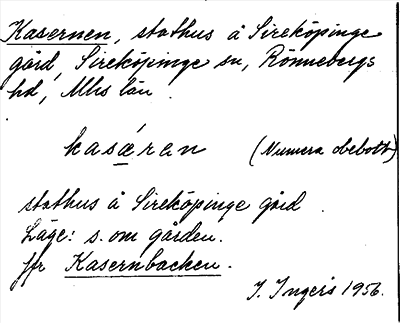 Kasernen, stathus å Sireköpinge
gård, Sireköpinge sn, Rönnebergs
hd, Mlhs län.
kasæ̀ran (Numera obebott)
stathus å Sireköpinge gård.
Läge: s. om gården.
jfr Kasernbacken.
I. Ingers 1956.